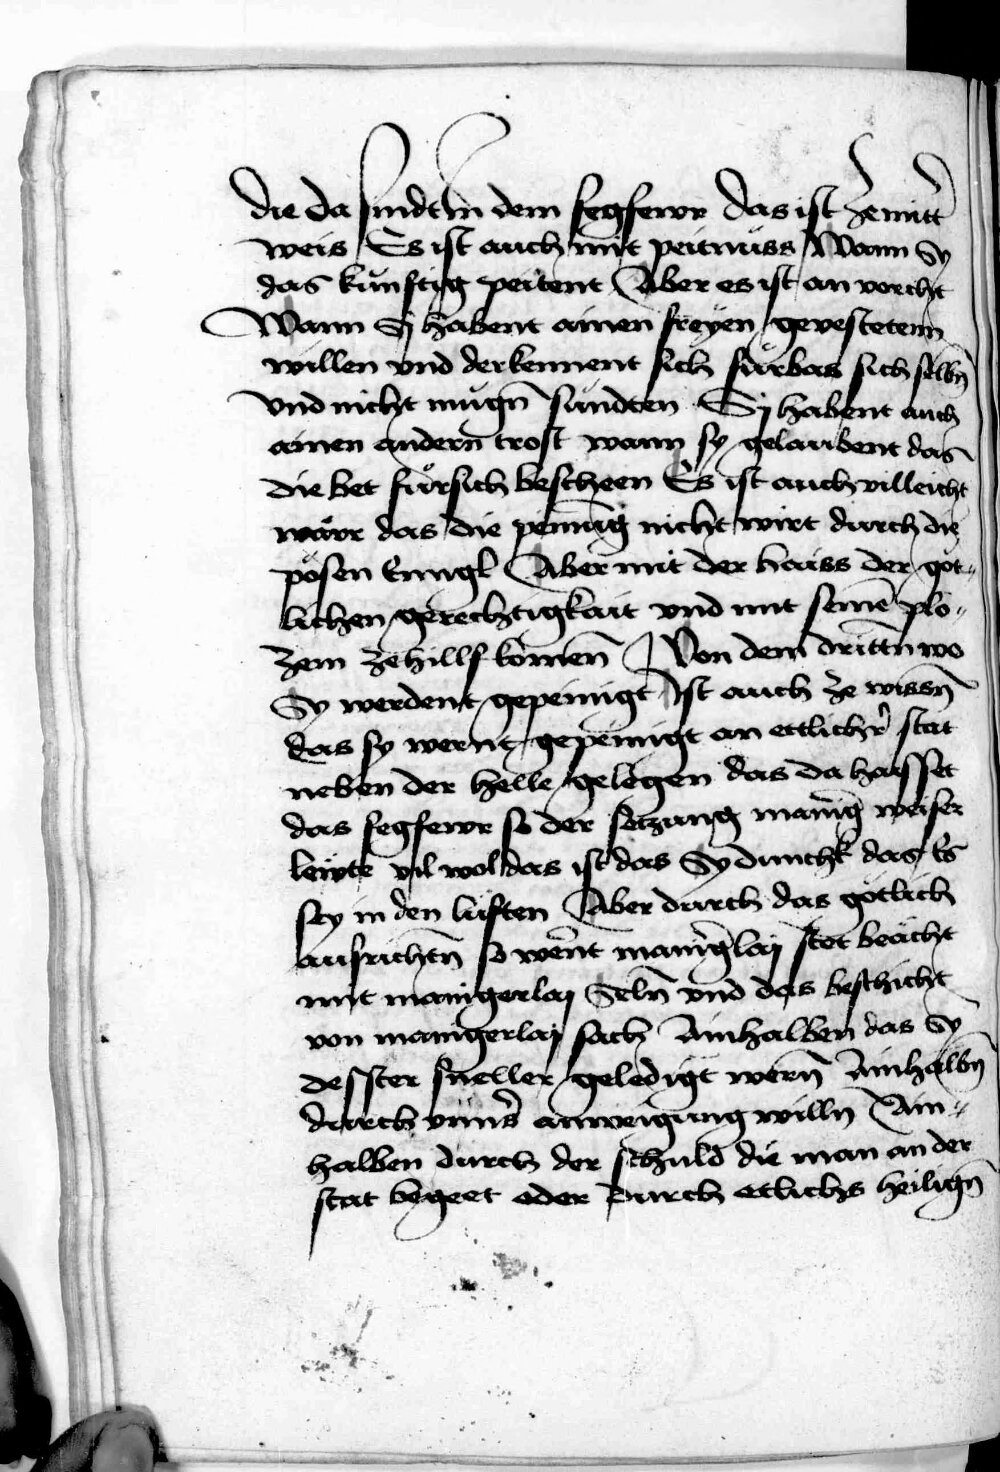 die da sindt in dem fegfewr das ist ze mittr̄
weis Es ist auch mit peitnuss Wann Sy
das kunftig peitent Aber es ist an vorcht
Wann Sÿ habent ainen freyen gevestetenn
willen vnd derkennent sich fürbas sich selbn̄
vnd nicht mügn̄ sündten Sÿ habent auch
ainen andern̄ trost wann sy gelaubent das
die bet für sich bescheen Es ist auch villeicht
wär das die peinnūg nicht wirt durch die
pösen Enngl Aber mit der haiss der göt-
lichen gerechtigkait vnd mit seinē plö-
zem ze hillf komen̄ Von dem dritttn̄ wo
Sy werdent gepeinigt Ist auch ze wissn̄
das sy wernt gepeinigt an ettlichr̄ stat
neben der helle gelegen das da haisset
das fegfewr so der satzung maniḡ weiser
lewte vil wol das ist das Sy dunchk das Es
sey in den lüften Aber durch das götlich
ausrichtn̄ so wernt maniḡlay stet beächt
mit manigerlay Seln̄ vnd das beschicht
von manigerlay sach Ainhalben das Sy
desster sneller geledigt wern̄ Ainhalbn̄
durch vnns̄ anweigung willn̄ Ain-
halben durch der schuld die man an der
stat begeet oder durch etlichs heilign̄